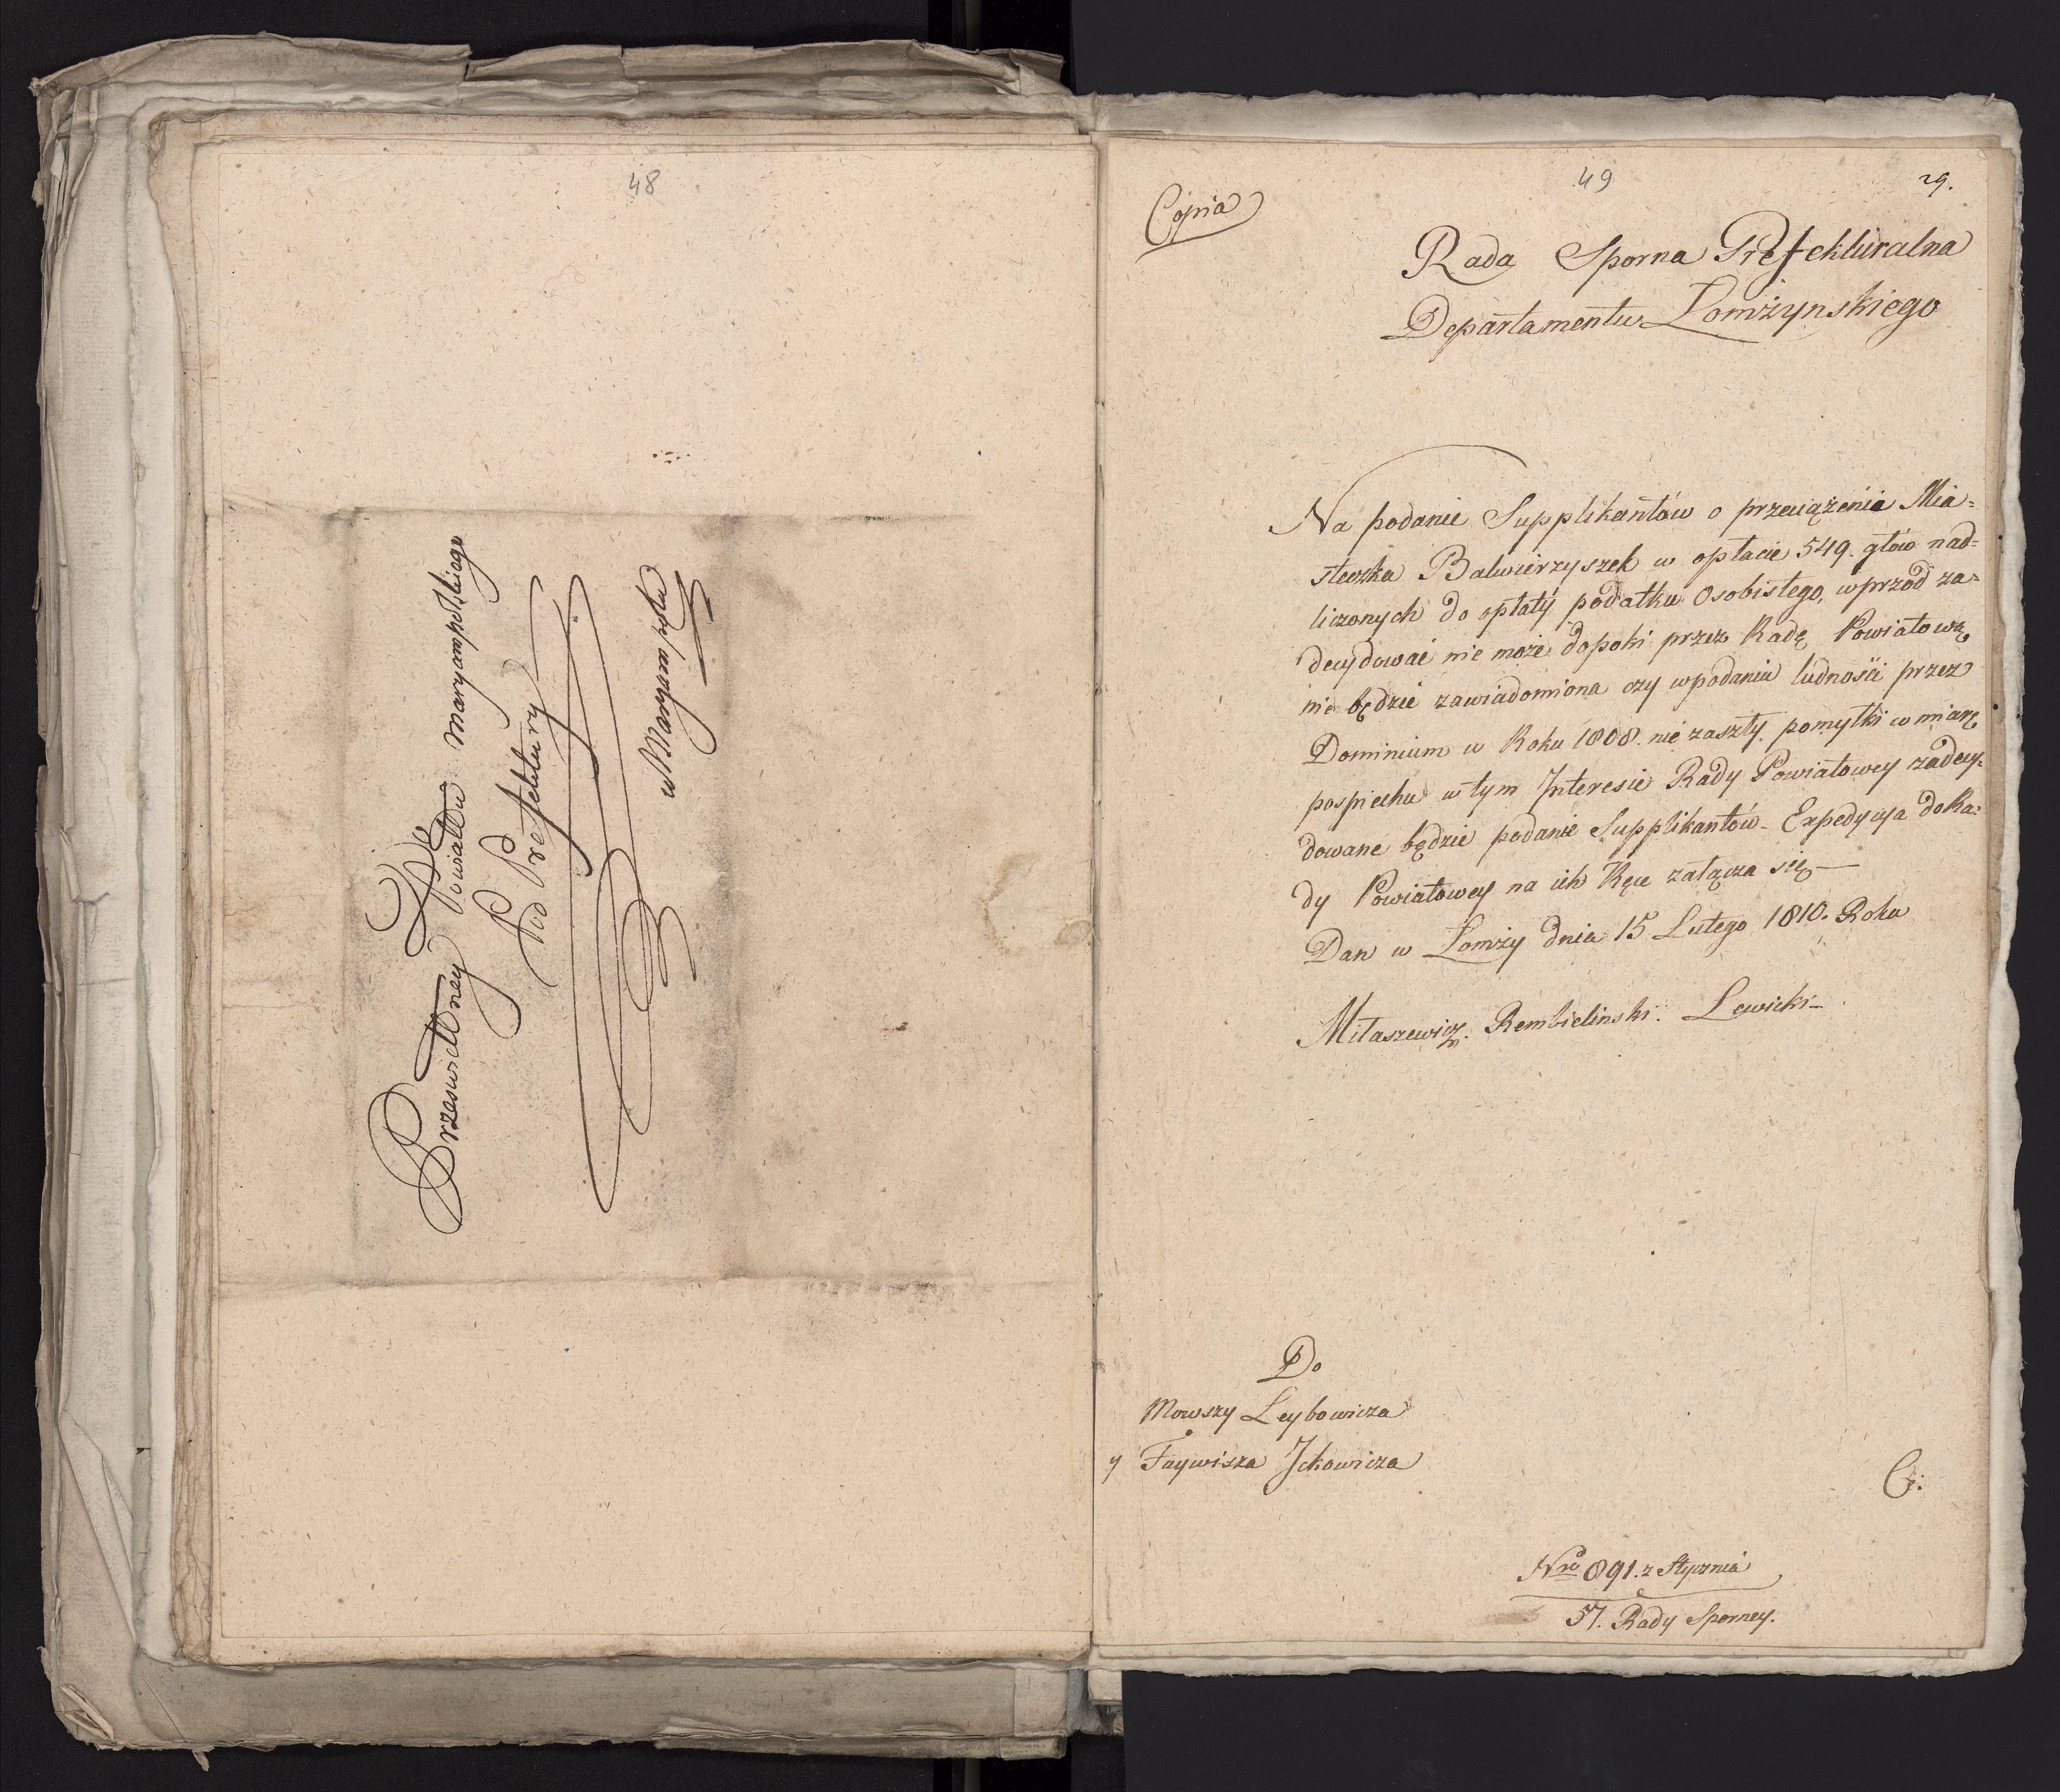 48
Przeswietney Powiatu Maryampolskiego
Pod Prefektury
w Maryampolu
49
29.
Copia
Rada Sporna Prefekturalna
Departamentu Łomżynskiego
Na podanie Supplikantów o przeciążenie Mia=
steczka Balwierzyszek w opłacie 549. głów nad=
liczonych do opłaty podatku Osobistego, wprzód za=
decydować nie może dopoki przez Radę Powiatową
nie będzie zawiadomiona czy wpodaniu ludności przez
Dominium w Roku 1808. nie zaszły pomyłki w miarę
pospiechu w tym Interesie Rady Powiatowey zadecy=
dowane będzie podanie Supplikantów - Expedycya do Ra=
dy Powiatowey na ich Ręce załącza się —
Dan w Łomży dnia 15 Lutego 1810. Roku
Miłaszewicz. Rembielinski. Lewicki -
Do
Mowszy Leybowicza
y Faywisza Jckowicza
Nro 891. z Stycznia
57. Rady Sporney.